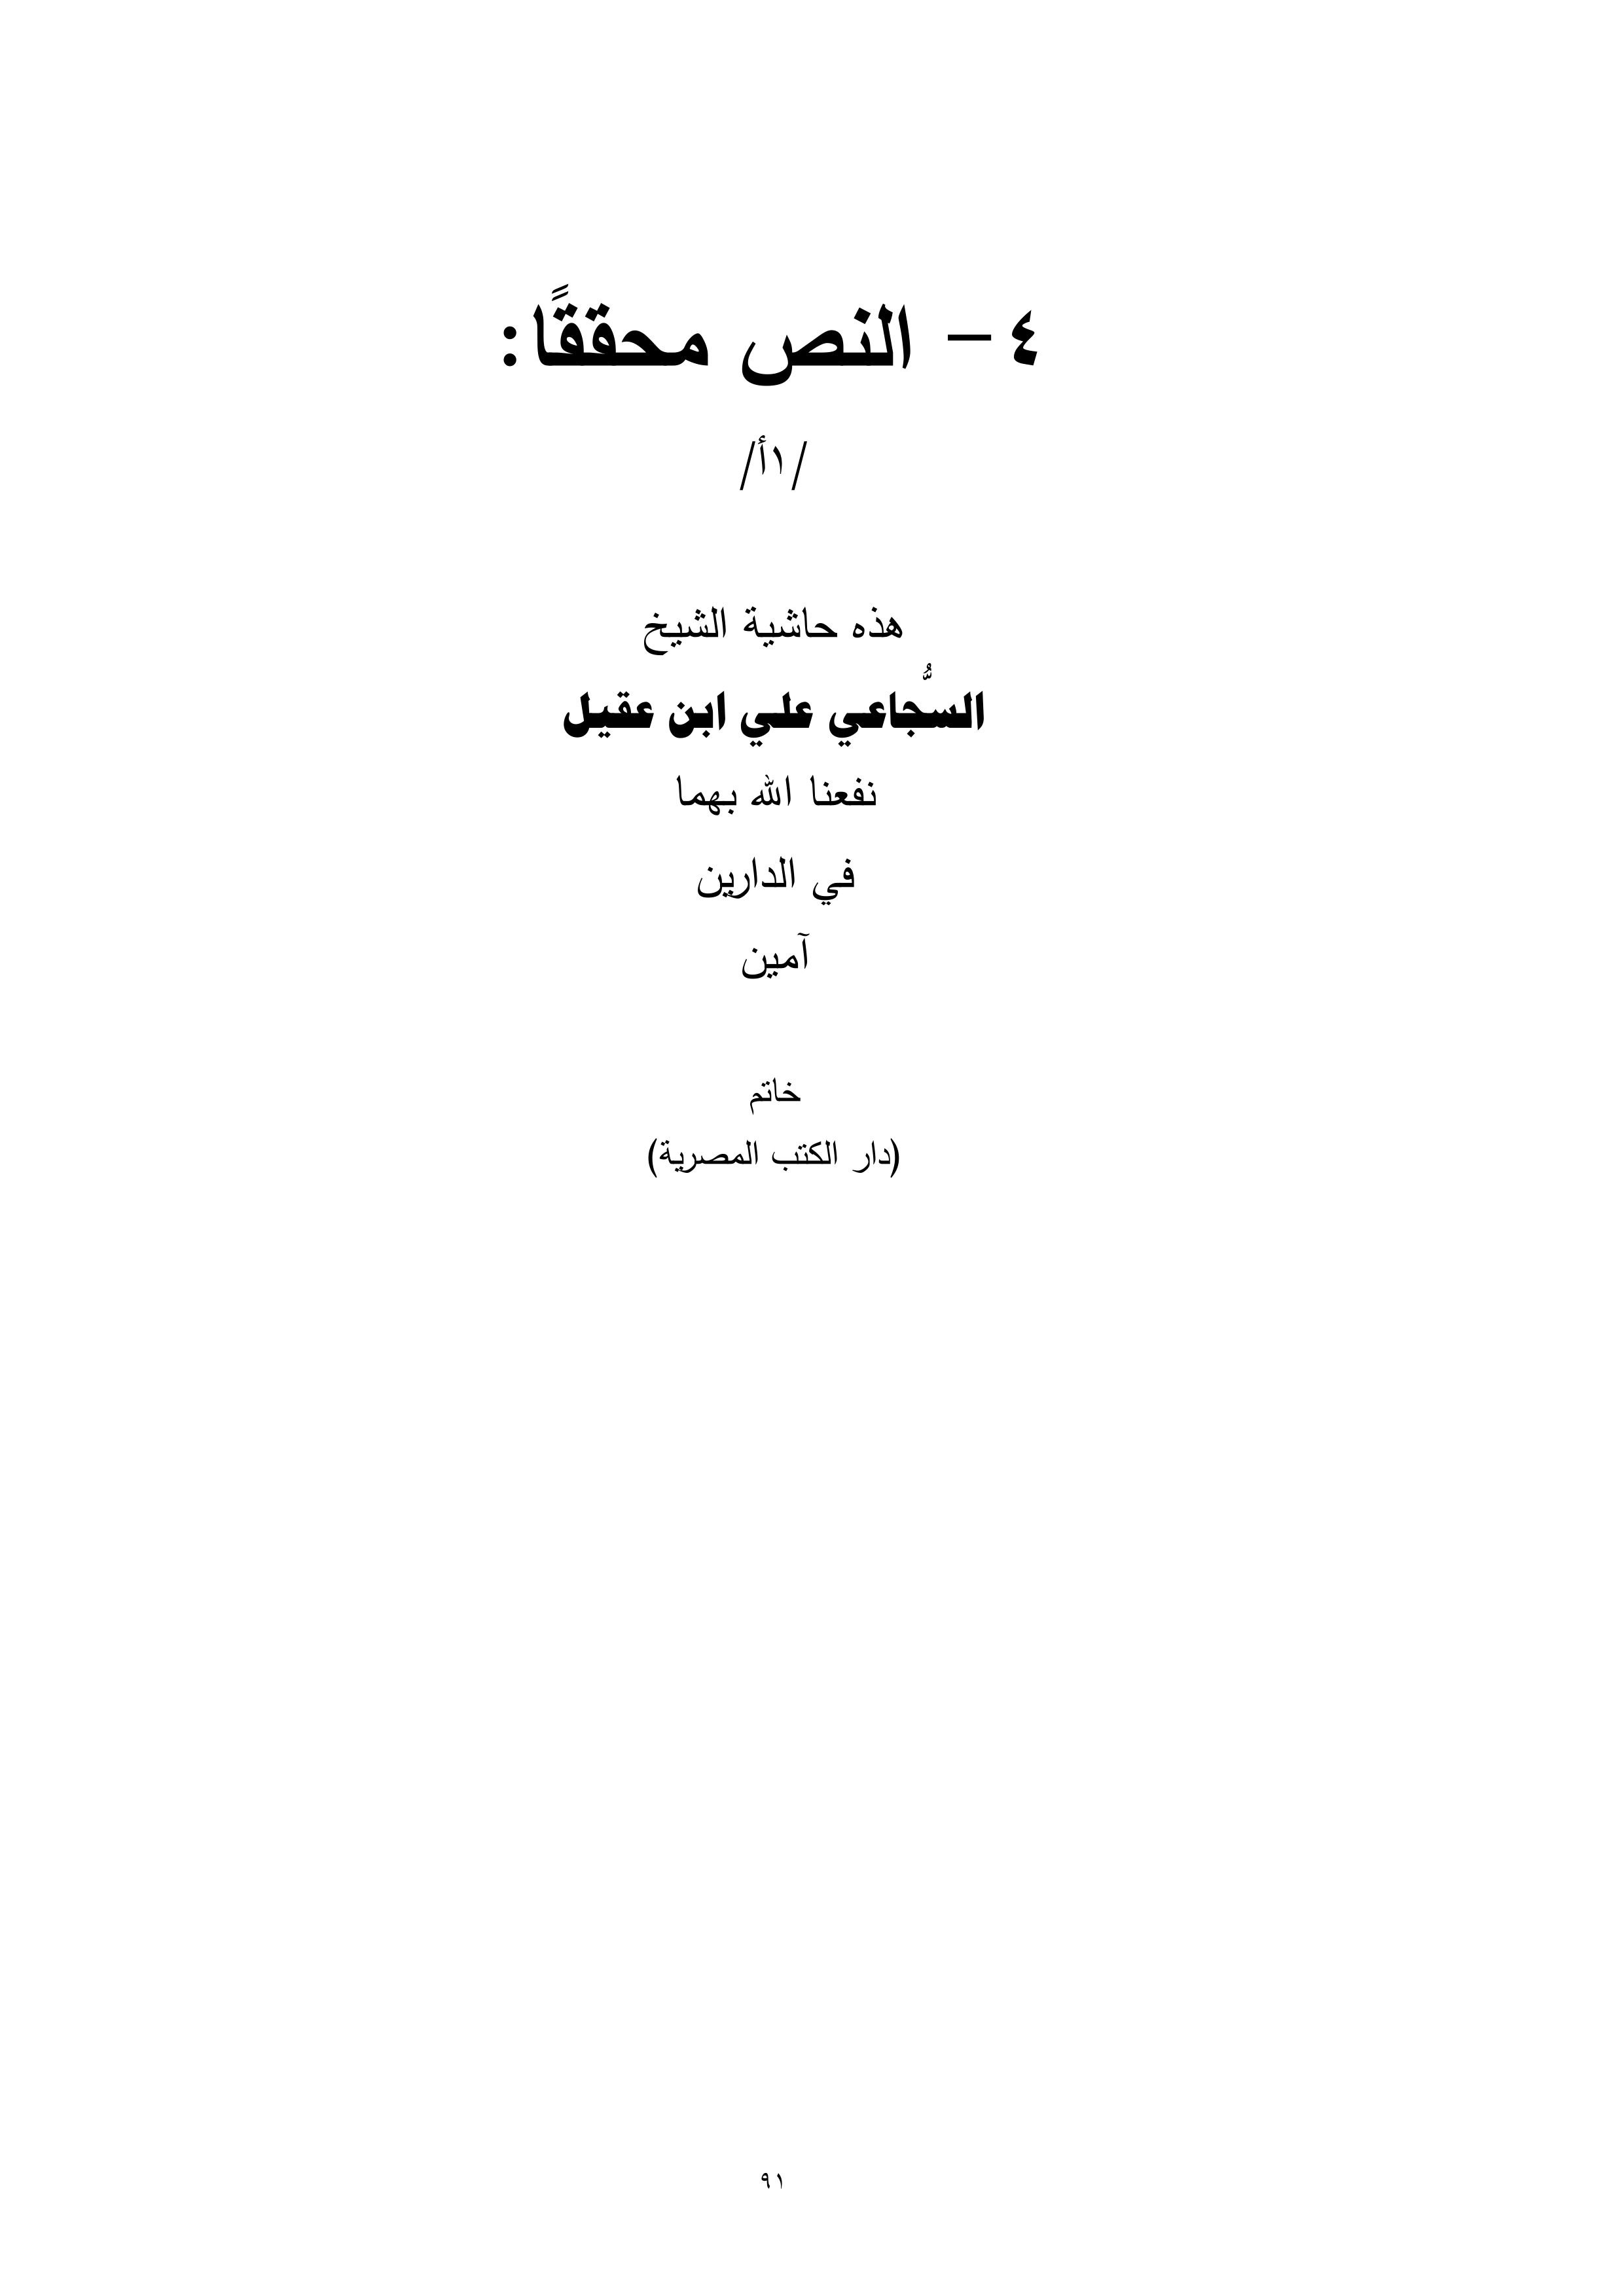 ٤ – النص محققًا:
/١أ/
هذه حاشية الشيخ
السُّجاعي علي ابن عقيل
نفعنا الله بهما
في الدارين
آمين
خاتم
(دار الكتب المصرية)
٩١